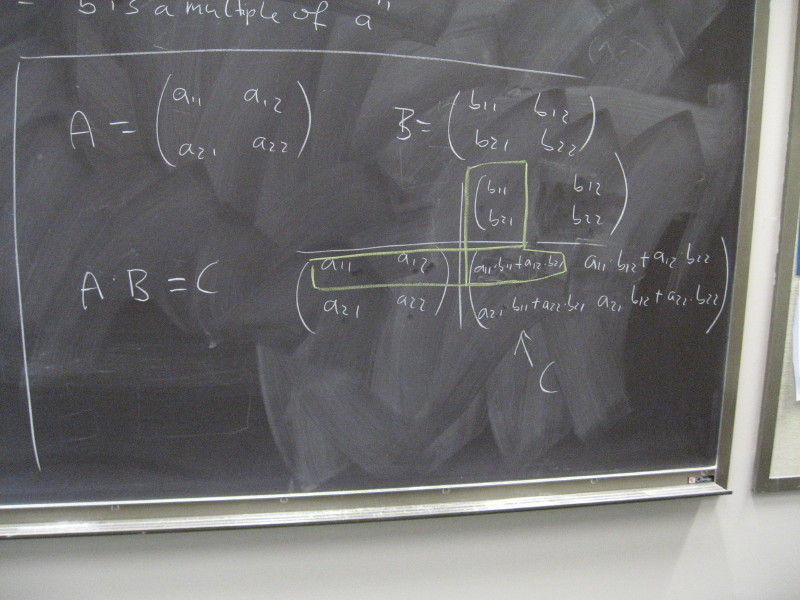 - b is a multiple of a"
A = ( a11 a12 B = ( b11 b12
a21 a22 ) b21 b22 )
( b11 b12
b21 b22 )
A · B = C ( a11 a12 ( a11·b11+a12·b21 a11·b12+a12·b22
a21 a22 ) a21·b11+a22·b21 a21 b12+a22·b22 )
↑
C